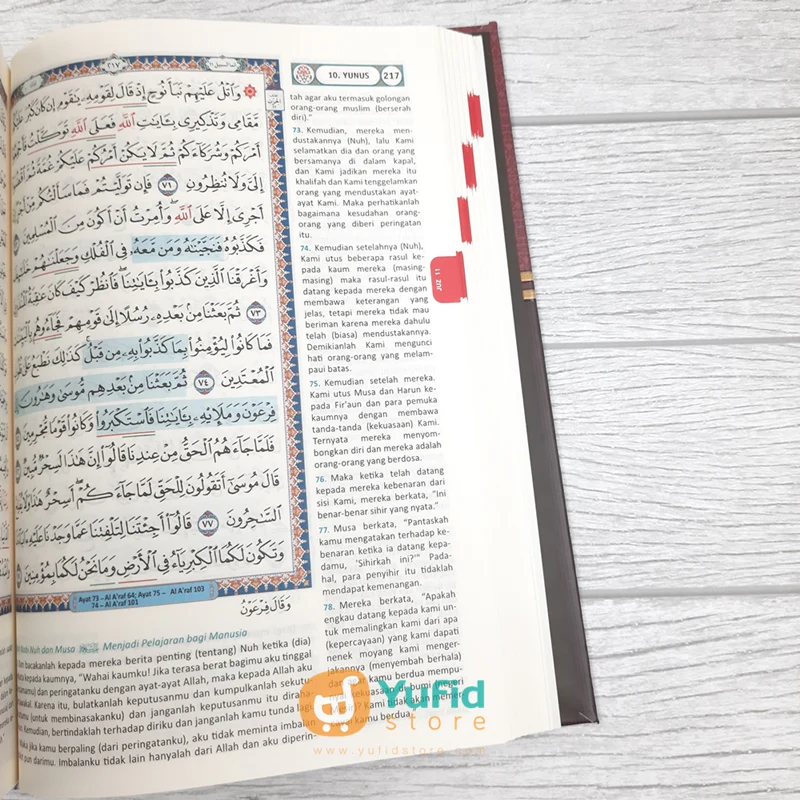 ٢١٧
10. YUNUS 217
وَاتْلُ عَلَيْهِمْ نَبَأَ نُوحٍ إِذْ قَالَ لِقَوْمِهِ يَٰقَوْمِ إِن كَانَ كَبُرَ عَلَيْكُم
مَّقَامِى وَتَذْكِيرِى بِـَٔايَٰتِ ٱللَّهِ فَعَلَى ٱللَّهِ تَوَكَّلْتُ
أَمْرَكُمْ وَشُرَكَآءَكُمْ ثُمَّ لَا يَكُنْ أَمْرُكُمْ عَلَيْكُمْ غُمَّةً ثُمَّ
إِلَىَّ وَلَا تُنظِرُونِ ٧١ فَإِن تَوَلَّيْتُمْ فَمَا سَأَلْتُكُم مِّنْ
أَجْرِىَ إِلَّا عَلَى ٱللَّهِ وَأُمِرْتُ أَنْ أَكُونَ مِنَ ٱلْمُسْلِمِينَ
فَكَذَّبُوهُ فَنَجَّيْنَٰهُ وَمَن مَّعَهُۥ فِى ٱلْفُلْكِ وَجَعَلْنَٰهُمْ
وَأَغْرَقْنَا ٱلَّذِينَ كَذَّبُوا۟ بِـَٔايَٰتِنَا فَٱنظُرْ كَيْفَ كَانَ عَٰقِبَةُ
٧٣ ثُمَّ بَعَثْنَا مِنۢ بَعْدِهِۦ رُسُلًا إِلَىٰ قَوْمِهِمْ فَجَآءُوهُم
فَمَا كَانُوا۟ لِيُؤْمِنُوا۟ بِمَا كَذَّبُوا۟ بِهِۦ مِن قَبْلُ كَذَٰلِكَ نَطْبَعُ عَلَىٰ
ٱلْمُعْتَدِينَ ٧٤ ثُمَّ بَعَثْنَا مِنۢ بَعْدِهِم مُّوسَىٰ وَهَٰرُونَ إِلَىٰ
فِرْعَوْنَ وَمَلَإِي۟هِۦ بِـَٔايَٰتِنَا فَٱسْتَكْبَرُوا۟ وَكَانُوا۟ قَوْمًا مُّجْرِمِينَ
فَلَمَّا جَآءَهُمُ ٱلْحَقُّ مِنْ عِندِنَا قَالُوٓا۟ إِنَّ هَٰذَا لَسِحْرٌ مُّبِينٌ
قَالَ مُوسَىٰٓ أَتَقُولُونَ لِلْحَقِّ لَمَّا جَآءَكُمْ أَسِحْرٌ هَٰذَا وَلَا
ٱلسَّٰحِرُونَ ٧٧ قَالُوٓا۟ أَجِئْتَنَا لِتَلْفِتَنَا عَمَّا وَجَدْنَا عَلَيْهِ
وَتَكُونَ لَكُمَا ٱلْكِبْرِيَآءُ فِى ٱلْأَرْضِ وَمَا نَحْنُ لَكُمَا بِمُؤْمِنِينَ
Ayat 73 – Al A'raf 64; Ayat 75 – Al A'raf 103
74 – Al A'raf 101
وَقَالَ فِرْعَوْنُ
Nuh dan Musa Menjadi Pelajaran bagi Manusia
bacakanlah kepada mereka berita penting (tentang) Nuh ketika (dia)
kepada kaumnya, "Wahai kaumku! Jika terasa berat bagimu aku tinggal
dan peringatanku dengan ayat-ayat Allah, maka kepada Allah aku
Karena itu, bulatkanlah keputusanmu dan kumpulkanlah
(untuk membinasakanku) dan janganlah keputusanmu itu
Kemudian, bertindaklah terhadap diriku dan janganlah kamu tunda
jika kamu berpaling (dari peringatanku), aku tidak meminta imbalan
pun darimu. Imbalanku tidak lain hanyalah dari Allah dan aku diperin-
tah agar aku termasuk golongan
orang-orang muslim (berserah
diri)."
73. Kemudian, mereka men-
dustakannya (Nuh), lalu Kami
selamatkan dia dan orang yang
bersamanya di dalam kapal,
dan Kami jadikan mereka itu
khalifah dan Kami tenggelamkan
orang yang mendustakan ayat-
ayat Kami. Maka perhatikanlah
bagaimana kesudahan orang-
orang yang diberi peringatan
itu.
74. Kemudian setelahnya (Nuh),
Kami utus beberapa rasul ke-
pada kaum mereka (masing-
masing) maka rasul-rasul itu
datang kepada mereka dengan
membawa keterangan yang
jelas, tetapi mereka tidak mau
beriman karena mereka dahulu
telah (biasa) mendustakannya.
Demikianlah Kami mengunci
hati orang-orang yang melam-
paui batas.
75. Kemudian setelah mereka.
Kami utus Musa dan Harun ke-
pada Fir'aun dan para pemuka
kaumnya dengan membawa
tanda-tanda (kekuasaan) Kami.
Ternyata mereka menyom-
bongkan diri dan mereka adalah
orang-orang yang berdosa.
76. Maka ketika telah datang
kepada mereka kebenaran dari
sisi Kami, mereka berkata, "Ini
benar-benar sihir yang nyata."
77. Musa berkata, "Pantaskah
kamu mengatakan terhadap ke-
benaran ketika ia datang kepa-
damu, 'Sihirkah ini?'" Pada-
hal, para penyihir itu tidaklah
mendapat kemenangan.
78. Mereka berkata, "Apakah
engkau datang kepada kami un-
tuk memalingkan kami dari apa
(kepercayaan) yang kami dapati
nenek moyang kami menger-
jakannya (menyembah berhala)
kamu berdua mempu-
di negeri
kamu berdua
JUZ 11
Yufid
store
www.yufidstore.com